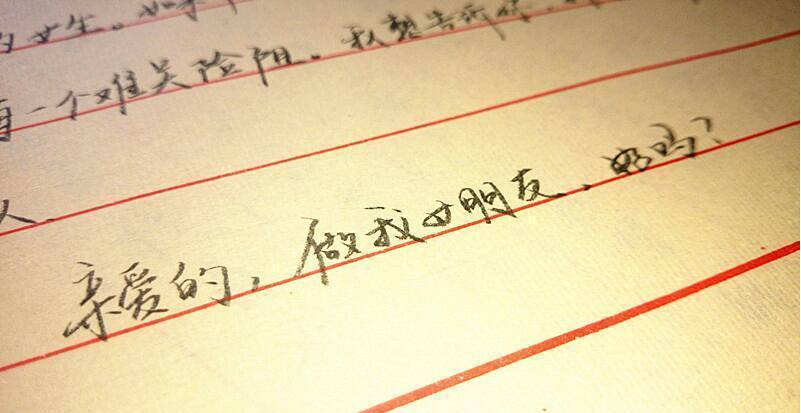 女生。如果
一个难关险阻。我想告诉你,
人.
亲爱的,做我女朋友、好吗?